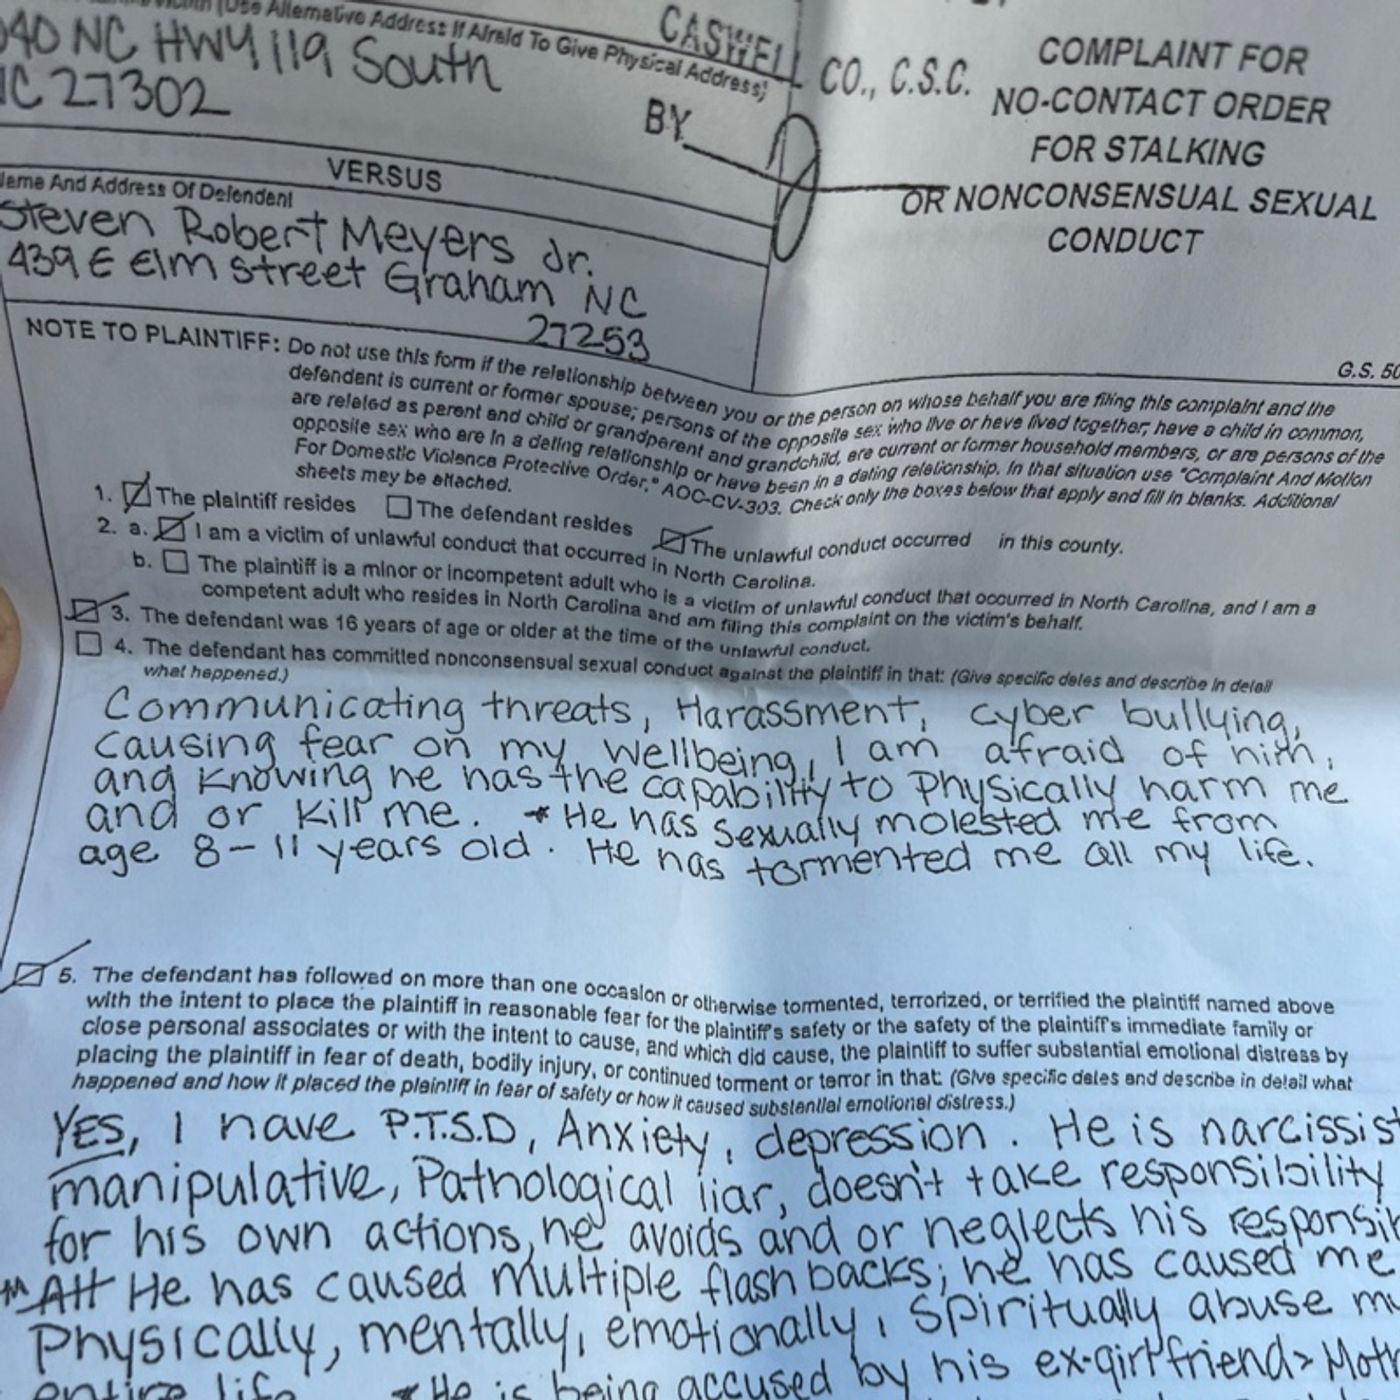 (Use Alternative Address If Afraid To Give Physical Address)
40 NC HWY 119 South
NC 27302
CASWELL CO., C.S.C.
BY
COMPLAINT FOR
NO-CONTACT ORDER
FOR STALKING
OR NONCONSENSUAL SEXUAL
CONDUCT
G.S. 50
VERSUS
Name And Address Of Defendant
Steven Robert Meyers Jr.
439 E Elm Street Graham NC
27253
NOTE TO PLAINTIFF: Do not use this form if the relationship between you or the person on whose behalf you are filing this complaint and the
defendant is current or former spouse; persons of the opposite sex who live or have lived together; have a child in common,
are related as parent and child or grandparent and grandchild, are current or former household members, or are persons of the
opposite sex who are in a dating relationship or have been in a dating relationship. In that situation use "Complaint And Motion
For Domestic Violence Protective Order," AOC-CV-303. Check only the boxes below that apply and fill in blanks. Additional
sheets may be attached.
1. The plaintiff resides The defendant resides The unlawful conduct occurred in this county.
2. a. I am a victim of unlawful conduct that occurred in North Carolina.
b. The plaintiff is a minor or incompetent adult who is a victim of unlawful conduct that occurred in North Carolina, and I am a
competent adult who resides in North Carolina and am filing this complaint on the victim's behalf.
3. The defendant was 16 years of age or older at the time of the unlawful conduct.
4. The defendant has committed nonconsensual sexual conduct against the plaintiff in that: (Give specific dates and describe in detail
what happened.)
Communicating threats, Harassment, cyber bullying,
causing fear on my wellbeing, I am afraid of him,
and knowing he has the capability to Physically harm me
and or kill me. * He has sexually molested me from
age 8-11 years old. He has tormented me all my life.
5. The defendant has followed on more than one occasion or otherwise tormented, terrorized, or terrified the plaintiff named above
with the intent to place the plaintiff in reasonable fear for the plaintiff's safety or the safety of the plaintiff's immediate family or
close personal associates or with the intent to cause, and which did cause, the plaintiff to suffer substantial emotional distress by
placing the plaintiff in fear of death, bodily injury, or continued torment or terror in that: (Give specific dates and describe in detail what
happened and how it placed the plaintiff in fear of safety or how it caused substantial emotional distress.)
YES, I have P.T.S.D, Anxiety, depression. He is narcissist
manipulative, Pathological liar, doesn't take responsibility
for his own actions, he avoids and or neglects his responsi
He has caused multiple flash backs; he has caused me
Physically, mentally, emotionally, spiritually abuse m
entire life. * He is being accused by his ex-girlfriend> Moth